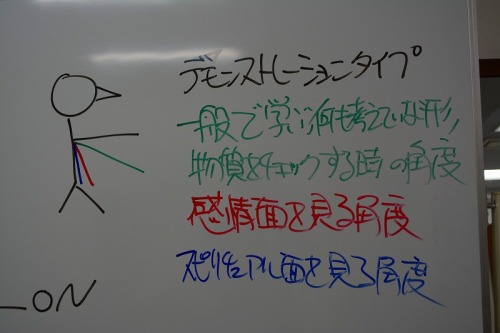 デモンストレーションタイプ
一般で学ぶ、何も考えていない形、
物質をチェックする時の角度
感情面を見る角度
スピリチュアル面を見る角度
ON